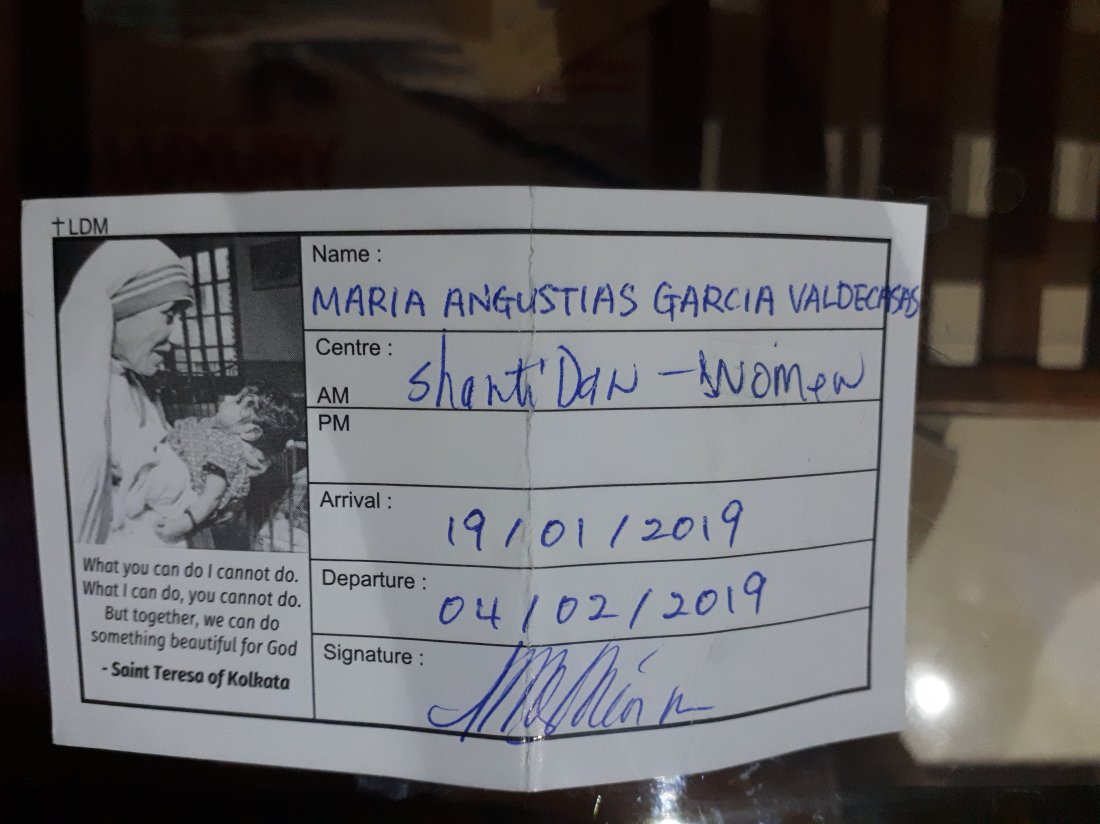 †LDM
Name :
MARIA ANGUSTIAS GARCIA VALDECASAS
Centre :
AM Shanti Dan - Women
PM
Arrival :
19/01/2019
Departure :
04/02/2019
Signature :
What you can do I cannot do.
What I can do, you cannot do.
But together, we can do
something beautiful for God
- Saint Teresa of Kolkata